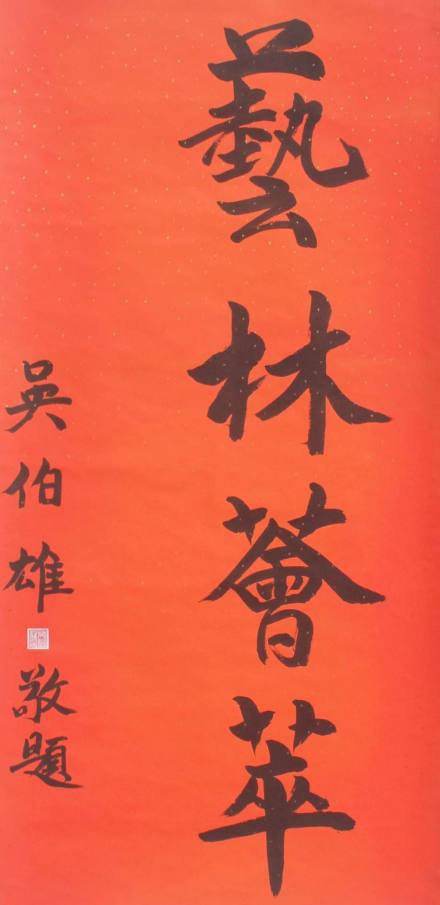 藝林薈萃
吳伯雄敬題